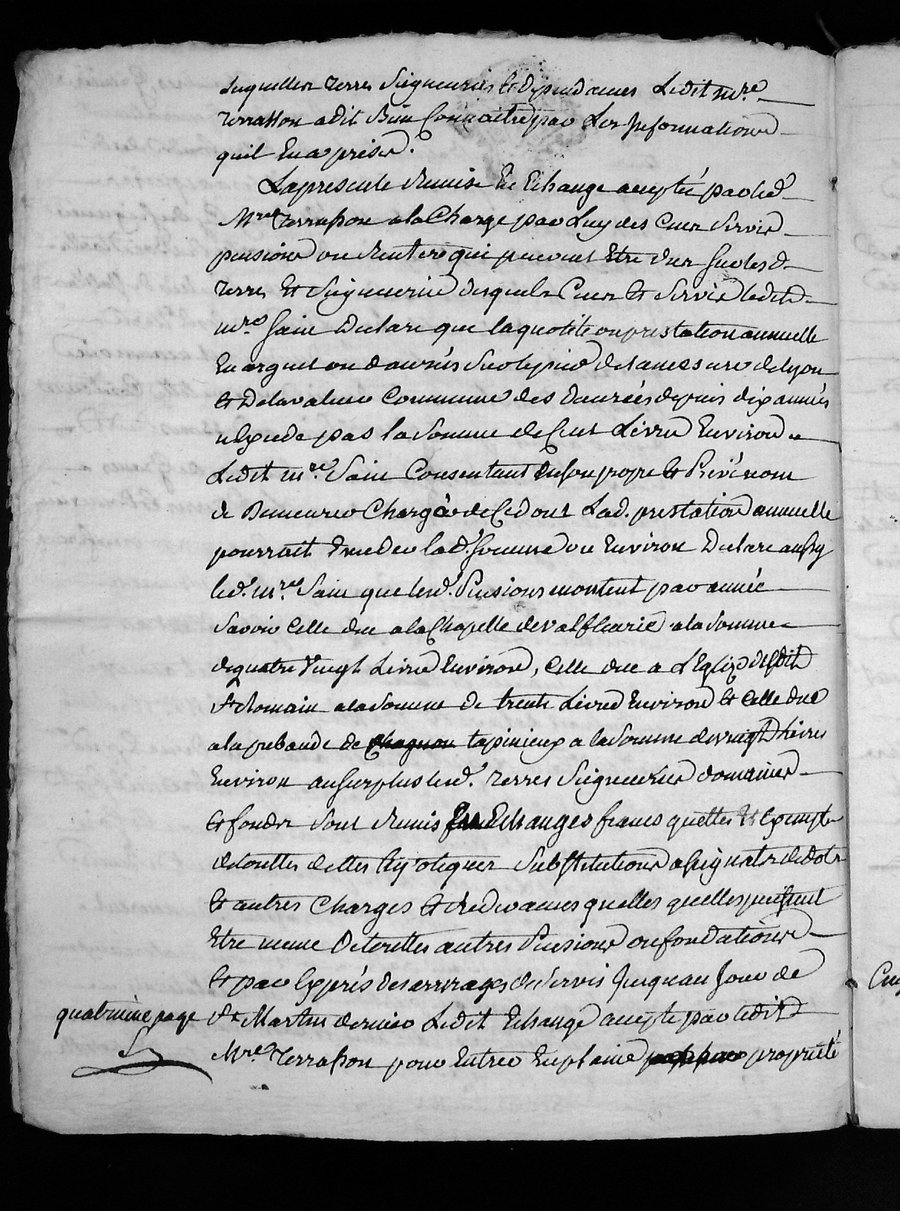 lesquelles terres Seigneuries et dependances Ledit mre
terrasson a dit Bien Connaitre par Les Informations
quil En a prises.
La presente Remise En Echange acceptée par led.
Mre Terrasson a la Charge par Luy des Cens Servis
pensions ou Rentes qui peuvent Etre dus sur lesd.
terres Et Seigneuries desquels Cens Et Servis ledit
mre Sain Declare que la quotité ou prestation annuelle
En argent ou danrées de la mesure de Lyon
Et De la valeur Commune des Danrées depuis dix années
nExcede pas la Somme de Cent Livres Environ
Ledit mre Sain Consentant En son propre Et Privé nom
de Demeurer Chargé de Ce dont Lad. prestation annuelle
pourrait Exceder lad. Somme ou Environ Declare aussy
led. mre Sain que lesd. Pensions montent par année
Savoir Celle due a la Chapelle de Valfleurie a la Somme
de quatre Vingt Livres Environ, Celle due a L'Eglise dudit
St Romain a la Somme de trente Livres Environ Et Celle due
a la prebande de Chagnon tapinieux a la Somme de vingt Livres
Environ au Surplus lesd. terres Seigneuries domaines
Et fonds Sont Remis En Echanges francs quittes Et Exempts
de touttes dettes hypoteques Substitutions assignats de dots
Et autres Charges Et Redevances quelles quelles puissent
Etre meme De touttes autres Pensions ou fondations
Et par Exprés des arrerages de Servis Jusquau Jour de
St Martin dernier Ledit Echange accepté par ledit
quatrieme page
Mre Terrasson pour Entrer En plaine propriété